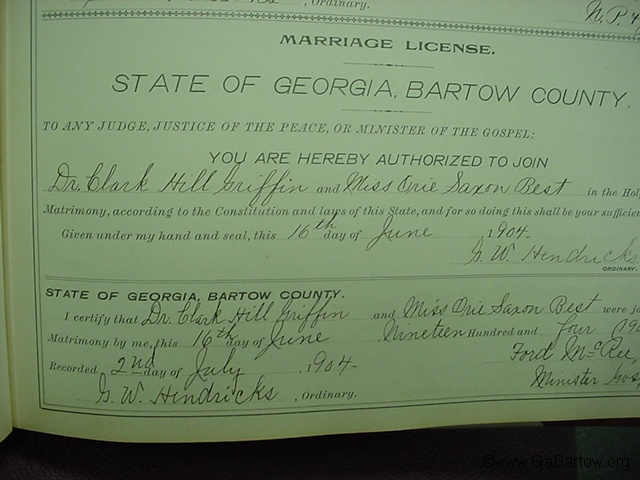 , Ordinary.
N.P. 4
MARRIAGE LICENSE.
STATE OF GEORGIA, BARTOW COUNTY.
TO ANY JUDGE, JUSTICE OF THE PEACE, OR MINISTER OF THE GOSPEL:
YOU ARE HEREBY AUTHORIZED TO JOIN
Dr. Clark Hill Griffin and Miss Orie Saxon Best in the Hol
Matrimony, according to the Constitution and laws of this State, and for so doing this shall be your sufficien
Given under my hand and seal, this 16th day of June , 1904-
G. W. Hendricks
ORDINARY.
STATE OF GEORGIA, BARTOW COUNTY.
I certify that Dr. Clark Hill Griffin and Miss Orie Saxon Best were jo
Matrimony by me, this 16th day of June , Nineteen Hundred and Four (190
Ford McRee,
Recorded 2nd day of July , 1904-
Minister Gosp
G. W. Hendricks , Ordinary.
©www.GaBartow.org